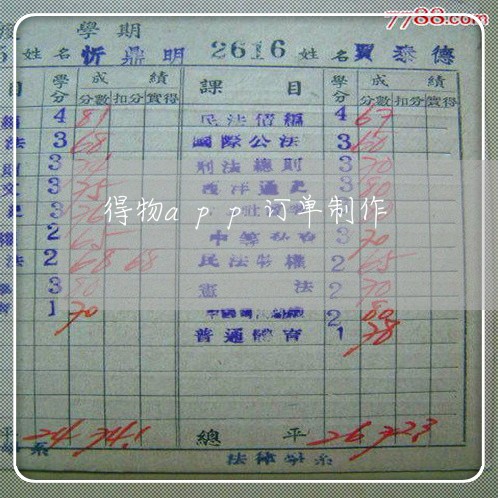 7788.com
學期
姓名 忻鼎明 2616 姓名 賈泰德
目 學分 成績 課目 學分 成績
分數 扣分 實得 分數 扣分 實得
4 81 民法債編 4 67
法 3 68 國際公法 3 60
3 刑法總則 3 70
3 75 西洋通史 3 80
3
2 65 3 70
法 2 68 68 民法物權 2 65
3 80 憲法 2 70
1 70 2 80
普通體育 1 78
得物app订单制作
平 24 74.1 總平 26 72.3
系 法律學系